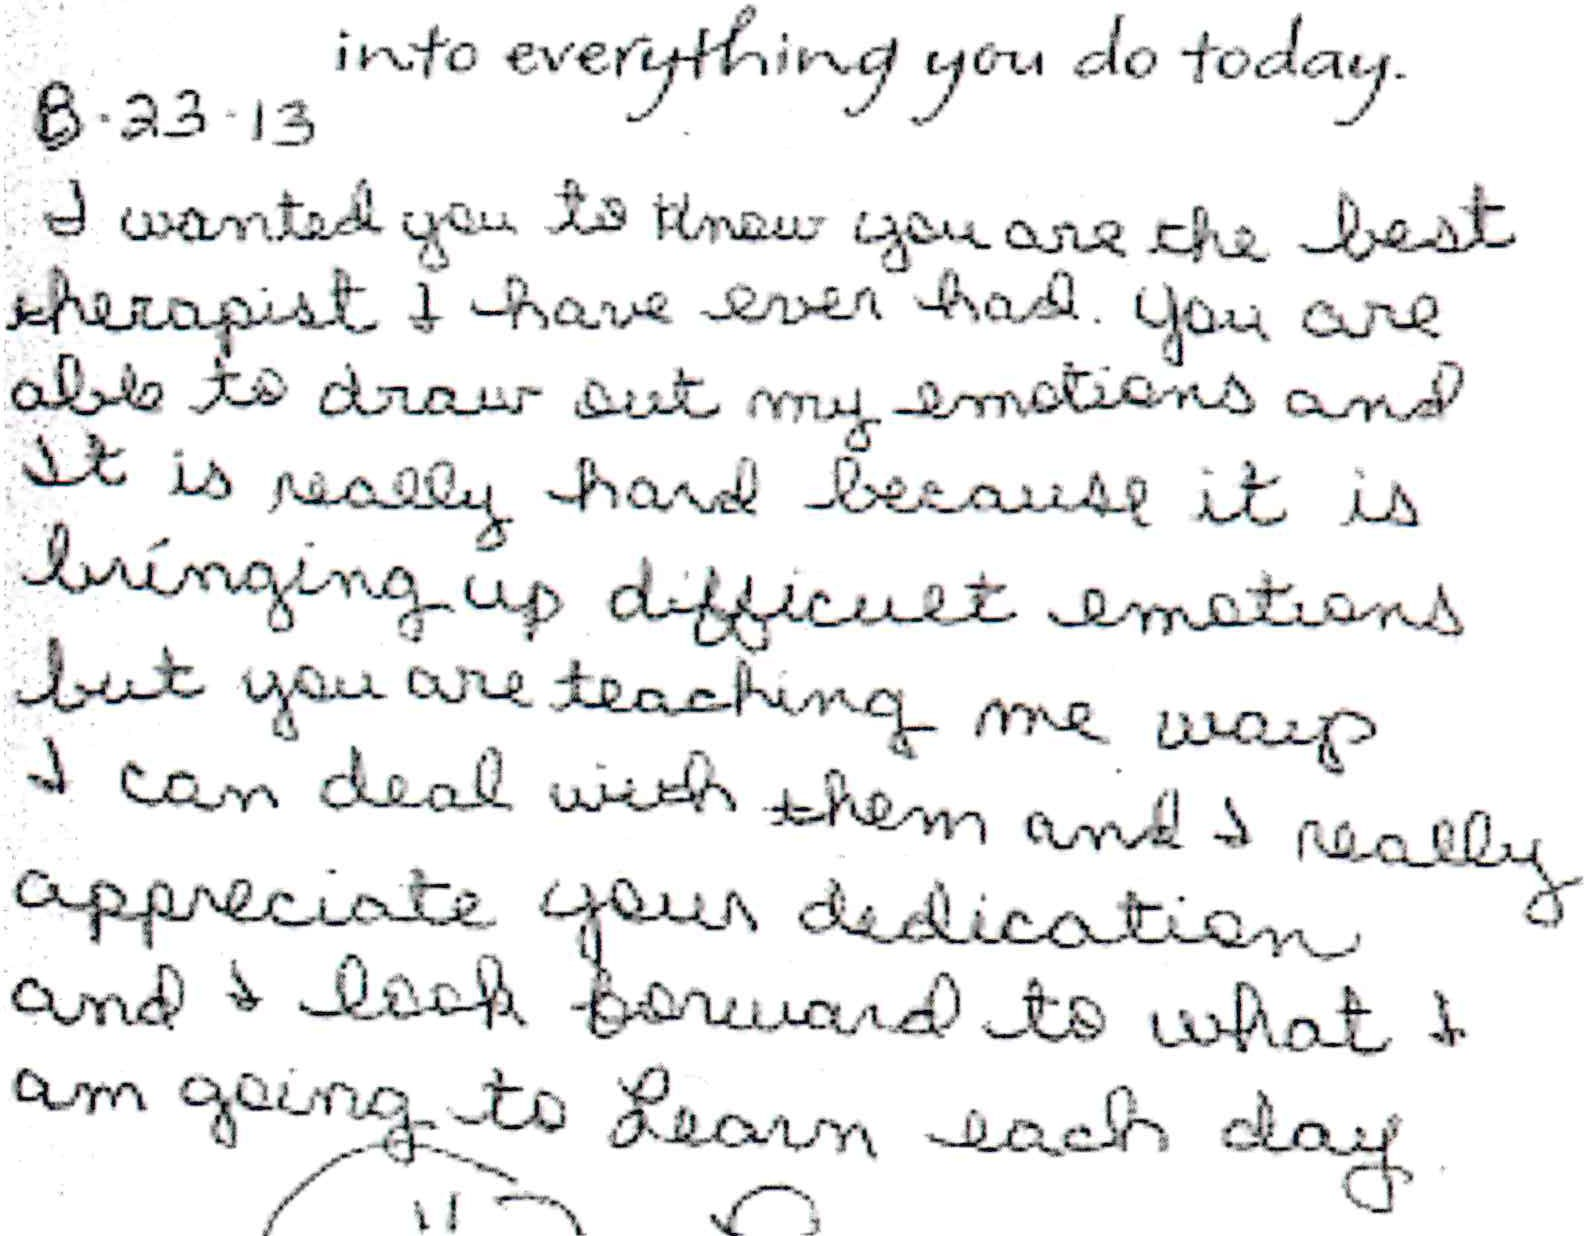 into everything you do today.
8-23-13
I wanted you to know you are the best
therapist I have ever had. You are
able to draw out my emotions and
It is really hard because it is
bringing up difficult emotions
but you are teaching me ways
I can deal with them and I really
appreciate your dedication
and I look forward to what I
am going to Learn each day